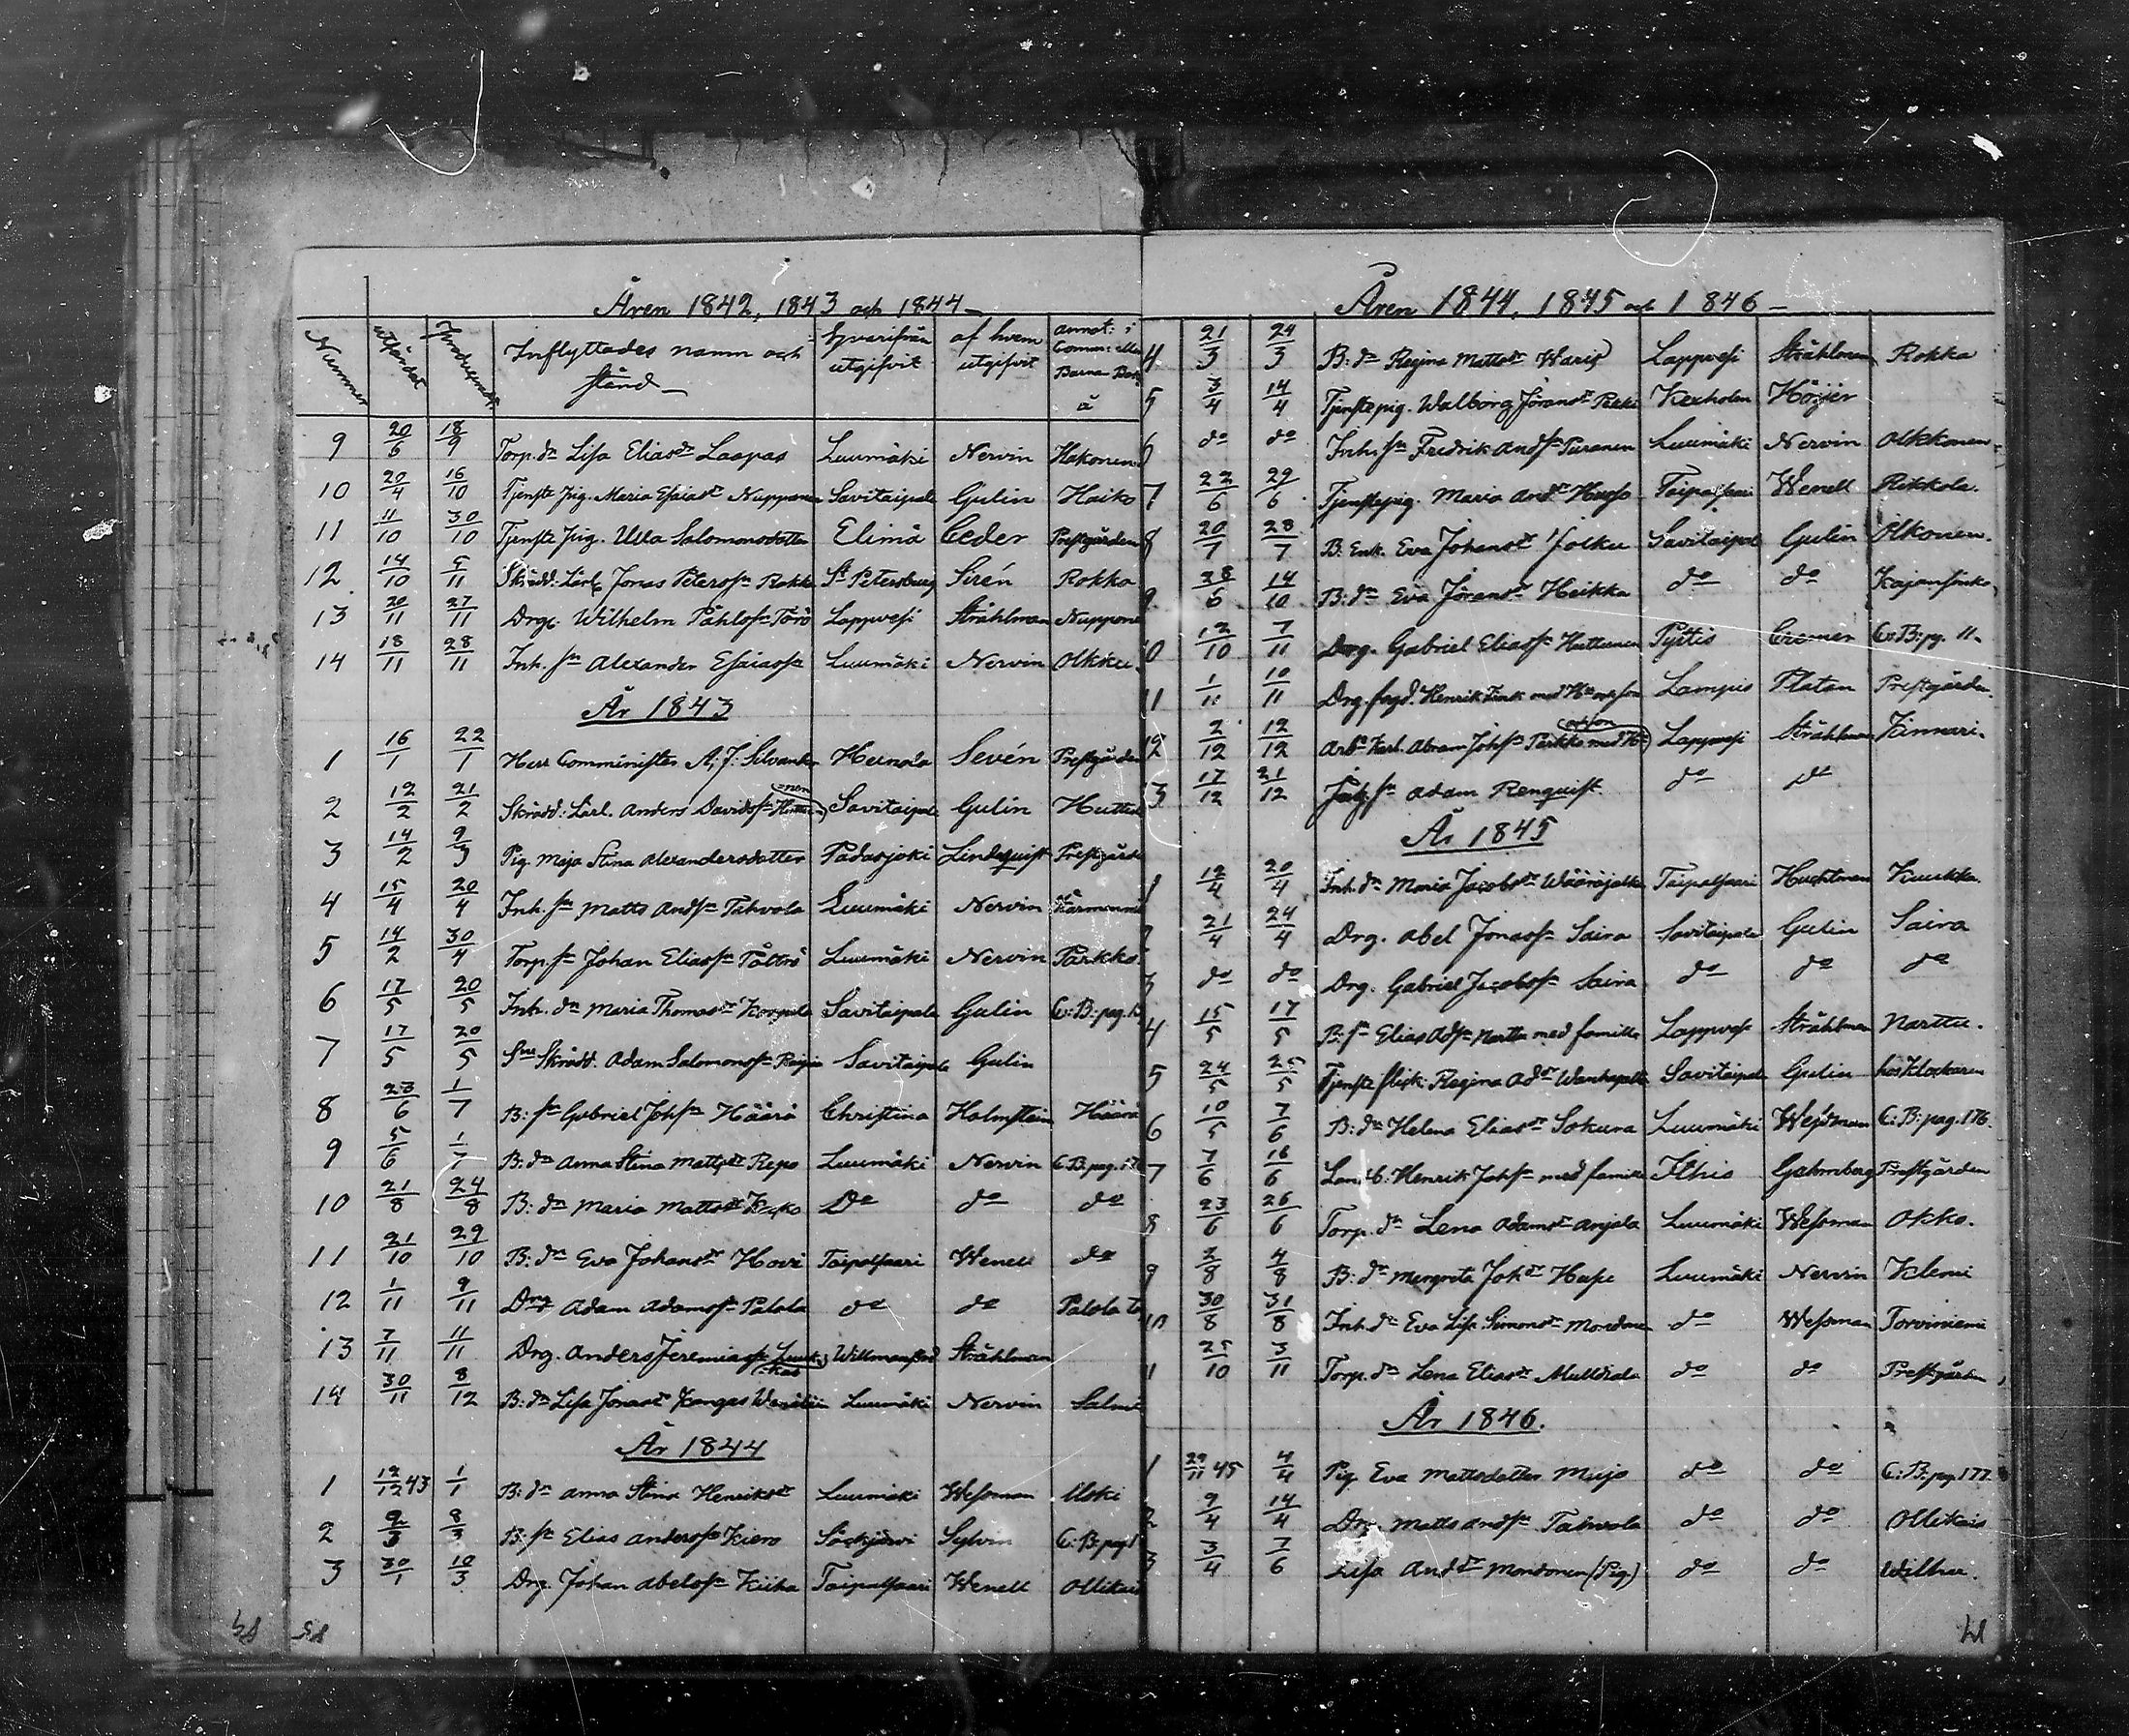 Åren 1842, 1843 och 1844
Nummer utfärdat Inflyttades namn och stånd hvarifrån utgifvit af hvem utgifvit annot: i Barna Bok å
9 20/6 18/9 Torp. dr Lisa Eliasdr Laapas Luumäki Nervin Hakonen
10 20/4 16/10 Tjenste pig. Maria Esaiasdr Nupponen Savitaipale Gulin Haiko
11 11/10 30/10 Tjenste pig. Ulla Salomonsdotter Elimä Ceder Prestgården
12 14/10 5/11 Skrädd. Lärl. Jonas Peterssn Rokka St Petersburg Sirén Rokka
13 20/11 27/11 Drg. Wilhelm Påhlssn Törö Lappvesi Stråhlman Nuppone
14 18/11 28/11 Inh. sn Alexander Esaiassn Luumäki Nervin Olkku
År 1843
1 16/1 22/1 Herr Comminister A. J. Silvander Heinola Sevén Prestgården
2 12/2 21/2 Skrädd: Lärl. Anders Davidssn Huttunen Savitaipale Gulin Huttu
3 14/2 9/3 Pig. Maja Stina Alexandersdotter Padasjoki Lindequist Prestgård
4 15/4 20/4 Inh. sn Matts Andssn Tahvola Luumäki Nervin Kärmenni
5 14/2 30/4 Torp. sn Johan Eliassn Tåltrö Luumäki Nervin Parkko
6 17/5 20/5 Inh. dr Maria Thomasdr Korpela Savitaipale Gulin C: B: pag.
7 17/5 20/5 Skrädd. Adam Salomonssn Savitaipale Gulin
8 23/6 1/7 B: sn Gabriel Johssn Häärä Christina Holmstein Häärä
9 5/6 1/7 B: dr Anna Stina Mattsdr Repo Luumäki Nervin C B: pag.
10 21/8 24/8 B: dr Maria Mattsdr Do do do
11 21/10 29/10 B: dr Eva Johansdr Hovi Taipalsaari Wenell do
12 1/11 9/11 Drg Adam Adamssn Palola do do Palola
13 7/11 11/11 Drg. Anders Jeremiassn Willmanstrd Stråhlman
14 30/11 8/12 B: dr Lisa Jonasdr Kangas Luumäki Nervin Salmi
År 1844
1 12/12 43 1/1 B: dr Anna Stina Henriksdr Luumäki Wessman Uski
2 9/3 8/3 B: sn Elias Anderssn Kiero Säckjärvi Sylvin C: B: pag
3 30/1 10/3 Drg. Johan Abelssn Kiiha Taipalsaari Wenell Ollikais
Åren 1844, 1845 och 1846
4 21/3 24/3 B: dr Regina Mattsdr Waris Lappvesi Stråhlman Rokka
5 3/4 14/4 Tjenstepig. Walborg Jöransdr Pekki Kexholm Höijer
6 do do Inh. sn Fredrik Andssn Turanen Luumäki Nervin Olkkonen
7 22/6 29/6 Tjenstepig. Maria Andsdr Taipalsaari Wenell Pekkola.
8 20/7 28/7 B. Enk. Eva Johansdr Jolku Savitaipal Gulin Olkonen.
9 28/6 14/10 B: dr Eva Jöransdr Heikka do do
10 12/10 7/11 Drg. Gabriel Eliassn Huttunen Pyttis Cremer C: B: pg. 11.
11 1/11 10/11 Drg. Henrik med Lampis Platan Prestgården.
12 2/12 12/12 Arb. Karl. Abram Johssn Parkko med Lappvesi Stråhlman Kinnari.
13 17/12 21/12 sn Adam Renquist do do
År 1845
1 12/4 20/4 Inh. dr Maria Jacobsdr Taipalsaari Huchtman Kuukka.
2 21/4 24/4 Drg. Abel Jonassn Saira Savitaipale Gulin Saira
3 do do Drg. Gabriel Jacobssn Saira do do do
4 15/5 17/5 B: sn Elias Adssn Narttu med famille Lappvesi Stråhlman Narttu.
5 24/5 25/5 Tjenste flick. Regina Adsdr Savitaipale Gulin hos Klockaren
6 10/5 7/6 B: dr Helena Eliasdr Sokura Luumäki Wessman C: B: pag. 176.
7 7/6 16/6 Henrik Johssn med famille Ithis Gahmberg Prestgården
8 23/6 26/6 Torp. dr Lena Adamsdr Anjala Luumäki Wessman Okko.
9 2/8 4/8 B: dr Margreta Johsdr Luumäki Nervin Klemi
10 30/8 31/8 Inh. dr Eva Lisa Simonsdr do Wessman Torviniemi
11 25/10 3/11 Torp. dr Lena Eliasdr Mulliala do do Prestgården
År 1846.
1 29/11 45 4/4 Pig Eva Mattsdotter Mujo do do C: B: pg. 177
2 9/4 14/4 Drg. Matts Andssn Tahvola do do Ollikais
3 3/4 7/6 Lisa Andsdr Mondonen (Pig) do do Wilhu.